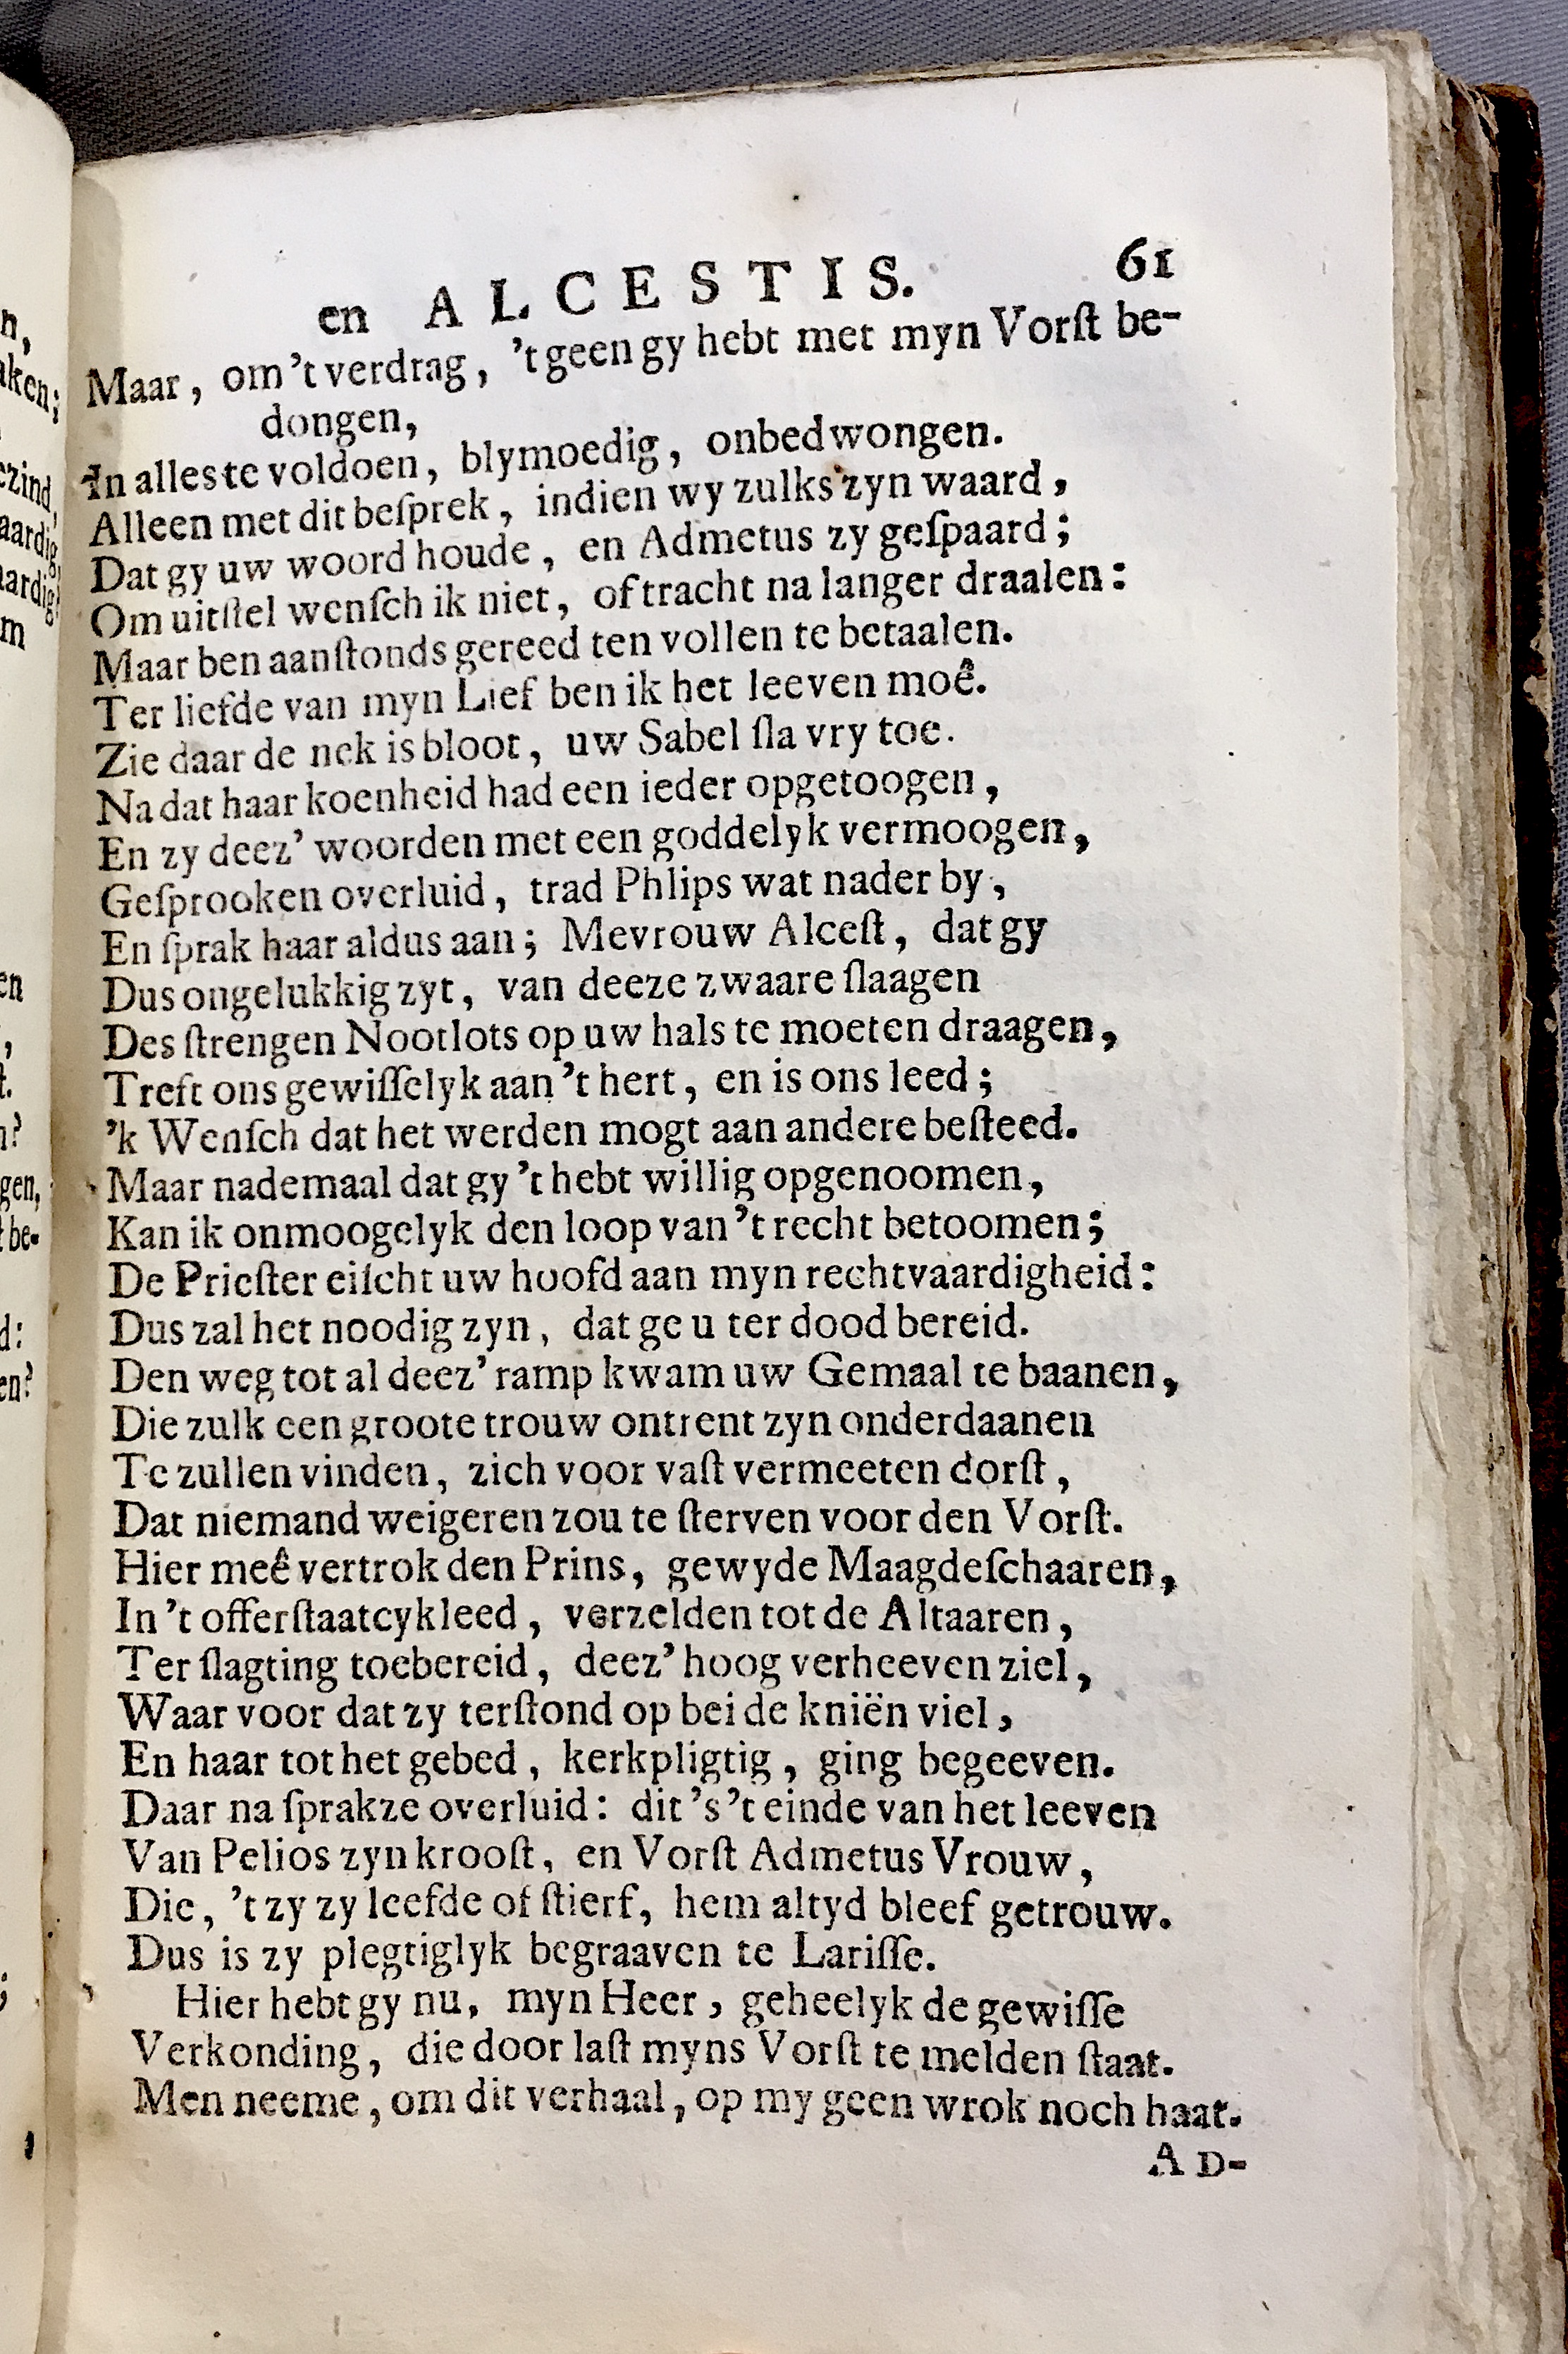 en ALCESTIS. 61
Maar, om 't verdrag, 't geen gy hebt met myn Vorſt be-
dongen,
In alles te voldoen, blymoedig, onbedwongen.
Alleen met dit beſprek, indien wy zulks zyn waard,
Dat gy uw woord houde, en Admetus zy geſpaard;
Om uitſtel wenſch ik niet, of tracht na langer draalen:
Maar ben aanſtonds gereed ten vollen te betaalen.
Ter liefde van myn Lief ben ik het leeven moê.
Zie daar de nek is bloot, uw Sabel ſla vry toe.
Na dat haar koenheid had een ieder opgetoogen,
En zy deez' woorden met een goddelyk vermoogen,
Geſprooken overluid, trad Phlips wat nader by,
En ſprak haar aldus aan; Mevrouw Alceſt, dat gy
Dus ongelukkig zyt, van deeze zwaare ſlaagen
Des ſtrengen Nootlots op uw hals te moeten draagen,
Treft ons gewiſſelyk aan 't hert, en is ons leed;
'k Wenſch dat het werden mogt aan andere beſteed.
Maar nademaal dat gy 't hebt willig opgenoomen,
Kan ik onmoogelyk den loop van 't recht betoomen;
De Prieſter eiſcht uw hoofd aan myn rechtvaardigheid:
Dus zal het noodig zyn, dat ge u ter dood bereid.
Den weg tot al deez' ramp kwam uw Gemaal te baanen,
Die zulk een groote trouw ontrent zyn onderdaanen
Te zullen vinden, zich voor vaſt vermeeten dorſt,
Dat niemand weigeren zou te ſterven voor den Vorſt.
Hier meê vertrok den Prins, gewyde Maagdeſchaaren,
In 't offerſtaatcykleed, verzelden tot de Altaaren,
Ter ſlagting toebereid, deez' hoog verheeven ziel,
Waar voor dat zy terſtond op beide kniën viel,
En haar tot het gebed, kerkpligtig, ging begeeven.
Daar na ſprakze overluid: dit 's 't einde van het leeven
Van Pelios zyn krooſt, en Vorſt Admetus Vrouw,
Die, 't zy zy leefde of ſtierf, hem altyd bleef getrouw.
Dus is zy plegtiglyk begraaven te Lariſſe.
Hier hebt gy nu, myn Heer, geheelyk de gewiſſe
Verkonding, die door laſt myns Vorſt te melden ſtaat.
Men neeme, om dit verhaal, op my geen wrok noch haat.
AD-